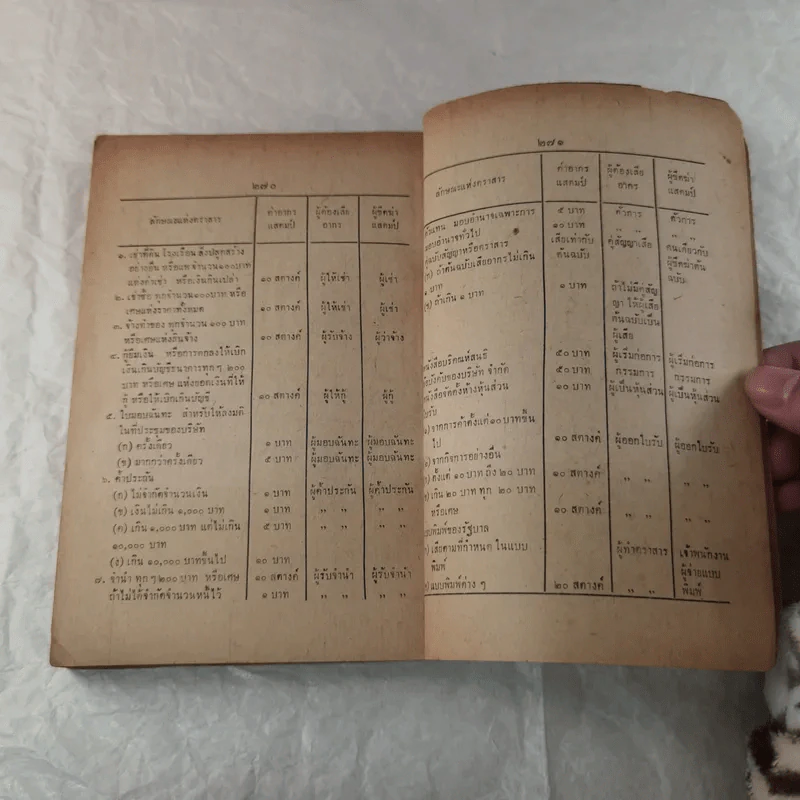 ๒๗๐
ลักษณะแห่งตราสาร ค่าอากร แสตมป์ ผู้ต้องเสีย อากร ผู้ขีดฆ่า แสตมป์
๑. เช่าที่ดิน โรงเรือน สิ่งปลูกสร้าง
อย่างอื่น หรือแพ จำนวน ๑๐๐ บาท
แห่งค่าเช่า หรือเงินกินเปล่า ๑๐ สตางค์ ผู้ให้เช่า ผู้เช่า
๒. เช่าซื้อ ทุกจำนวน ๑๐๐ บาท หรือ
เศษแห่งราคาทั้งหมด ๑๐ สตางค์ ผู้ให้เช่า ผู้เช่า
๓. จ้างทำของ ทุกจำนวน ๑๐๐ บาท
หรือเศษแห่งสินจ้าง ๑๐ สตางค์ ผู้รับจ้าง ผู้ว่าจ้าง
๔. กู้ยืมเงิน หรือการตกลงให้เบิก
เงินเกินบัญชีธนาคารทุก ๆ ๒๐๐
บาท หรือเศษ แห่งยอดเงินที่ให้
กู้ หรือให้เบิกเกินบัญชี ๑๐ สตางค์ ผู้ให้กู้ ผู้กู้
๕. ใบมอบฉันทะ สำหรับให้ลงมติ
ในที่ประชุมของบริษัท
(ก) ครั้งเดียว ๑ บาท ผู้มอบฉันทะ ผู้มอบฉันทะ
(ข) มากกว่าครั้งเดียว ๕ บาท ผู้มอบฉันทะ ผู้มอบฉันทะ
๖. ค้ำประกัน
(ก) ไม่จำกัดจำนวนเงิน ๑ บาท ผู้ค้ำประกัน ผู้ค้ำประกัน
(ข) เงินไม่เกิน ๑,๐๐๐ บาท ๑ บาท ,, ,, ,, ,,
(ค) เกิน ๑,๐๐๐ บาท แต่ไม่เกิน ๕ บาท ,, ,, ,, ,,
๑๐,๐๐๐ บาท
(ง) เกิน ๑๐,๐๐๐ บาทขึ้นไป ๑๐ บาท
๗. จำนำ ทุก ๆ ๒๐๐ บาท หรือเศษ ๑๐ สตางค์ ผู้รับจำนำ ผู้รับจำนำ
ถ้าไม่ได้จำกัดจำนวนหนี้ไว้ ๑ บาท ,, ,, ,, ,,
๒๗๑
ลักษณะแห่งตราสาร ค่าอากร แสตมป์ ผู้ต้องเสีย อากร ผู้ขีดฆ่า แสตมป์
ตัวแทน มอบอำนาจเฉพาะการ ๕ บาท ตัวการ ตัวการ
มอบอำนาจทั่วไป ๑๐ บาท
คู่ฉบับสัญญาหรือตราสาร เสียเท่ากับ คู่สัญญาเสีย คนเดียวกับ
(ก) ถ้าต้นฉบับเสียอากรไม่เกิน ต้นฉบับ ผู้ขีดฆ่าต้น
๑ บาท ฉบับ
(ข) ถ้าเกิน ๑ บาท ๑ บาท ถ้าไม่มีคู่สัญ
ญา ให้ผู้เสีย
ต้นฉบับเป็น
ผู้เสีย
หนังสือบริคณห์สนธิ ๕๐ บาท ผู้เริ่มก่อการ ผู้เริ่มก่อการ
ข้อบังคับของบริษัท จำกัด ๕๐ บาท กรรมการ กรรมการ
หนังสือจัดตั้งห้างหุ้นส่วน ๑๐ บาท ผู้เป็นหุ้นส่วน ผู้เป็นหุ้นส่วน
ใบรับ
จากการค้าตั้งแต่ ๑๐ บาทขึ้น
ไป ๑๐ สตางค์ ผู้ออกใบรับ ผู้ออกใบรับ
จากกิจการอย่างอื่น
ตั้งแต่ ๑๐ บาท ถึง ๒๐ บาท ๑๐ สตางค์ ,, ,, ,, ,,
เกิน ๒๐ บาท ทุก ๒๐ บาท
หรือเศษ ๑๐ สตางค์ ,, ,, ,, ,,
แบบพิมพ์ของรัฐบาล
เสียตามที่กำหนด ในแบบ ผู้ทำตราสาร เจ้าพนักงาน
พิมพ์ ผู้จ่ายแบบ
แบบพิมพ์ต่าง ๆ ๒๐ สตางค์ ,, ,, พิมพ์